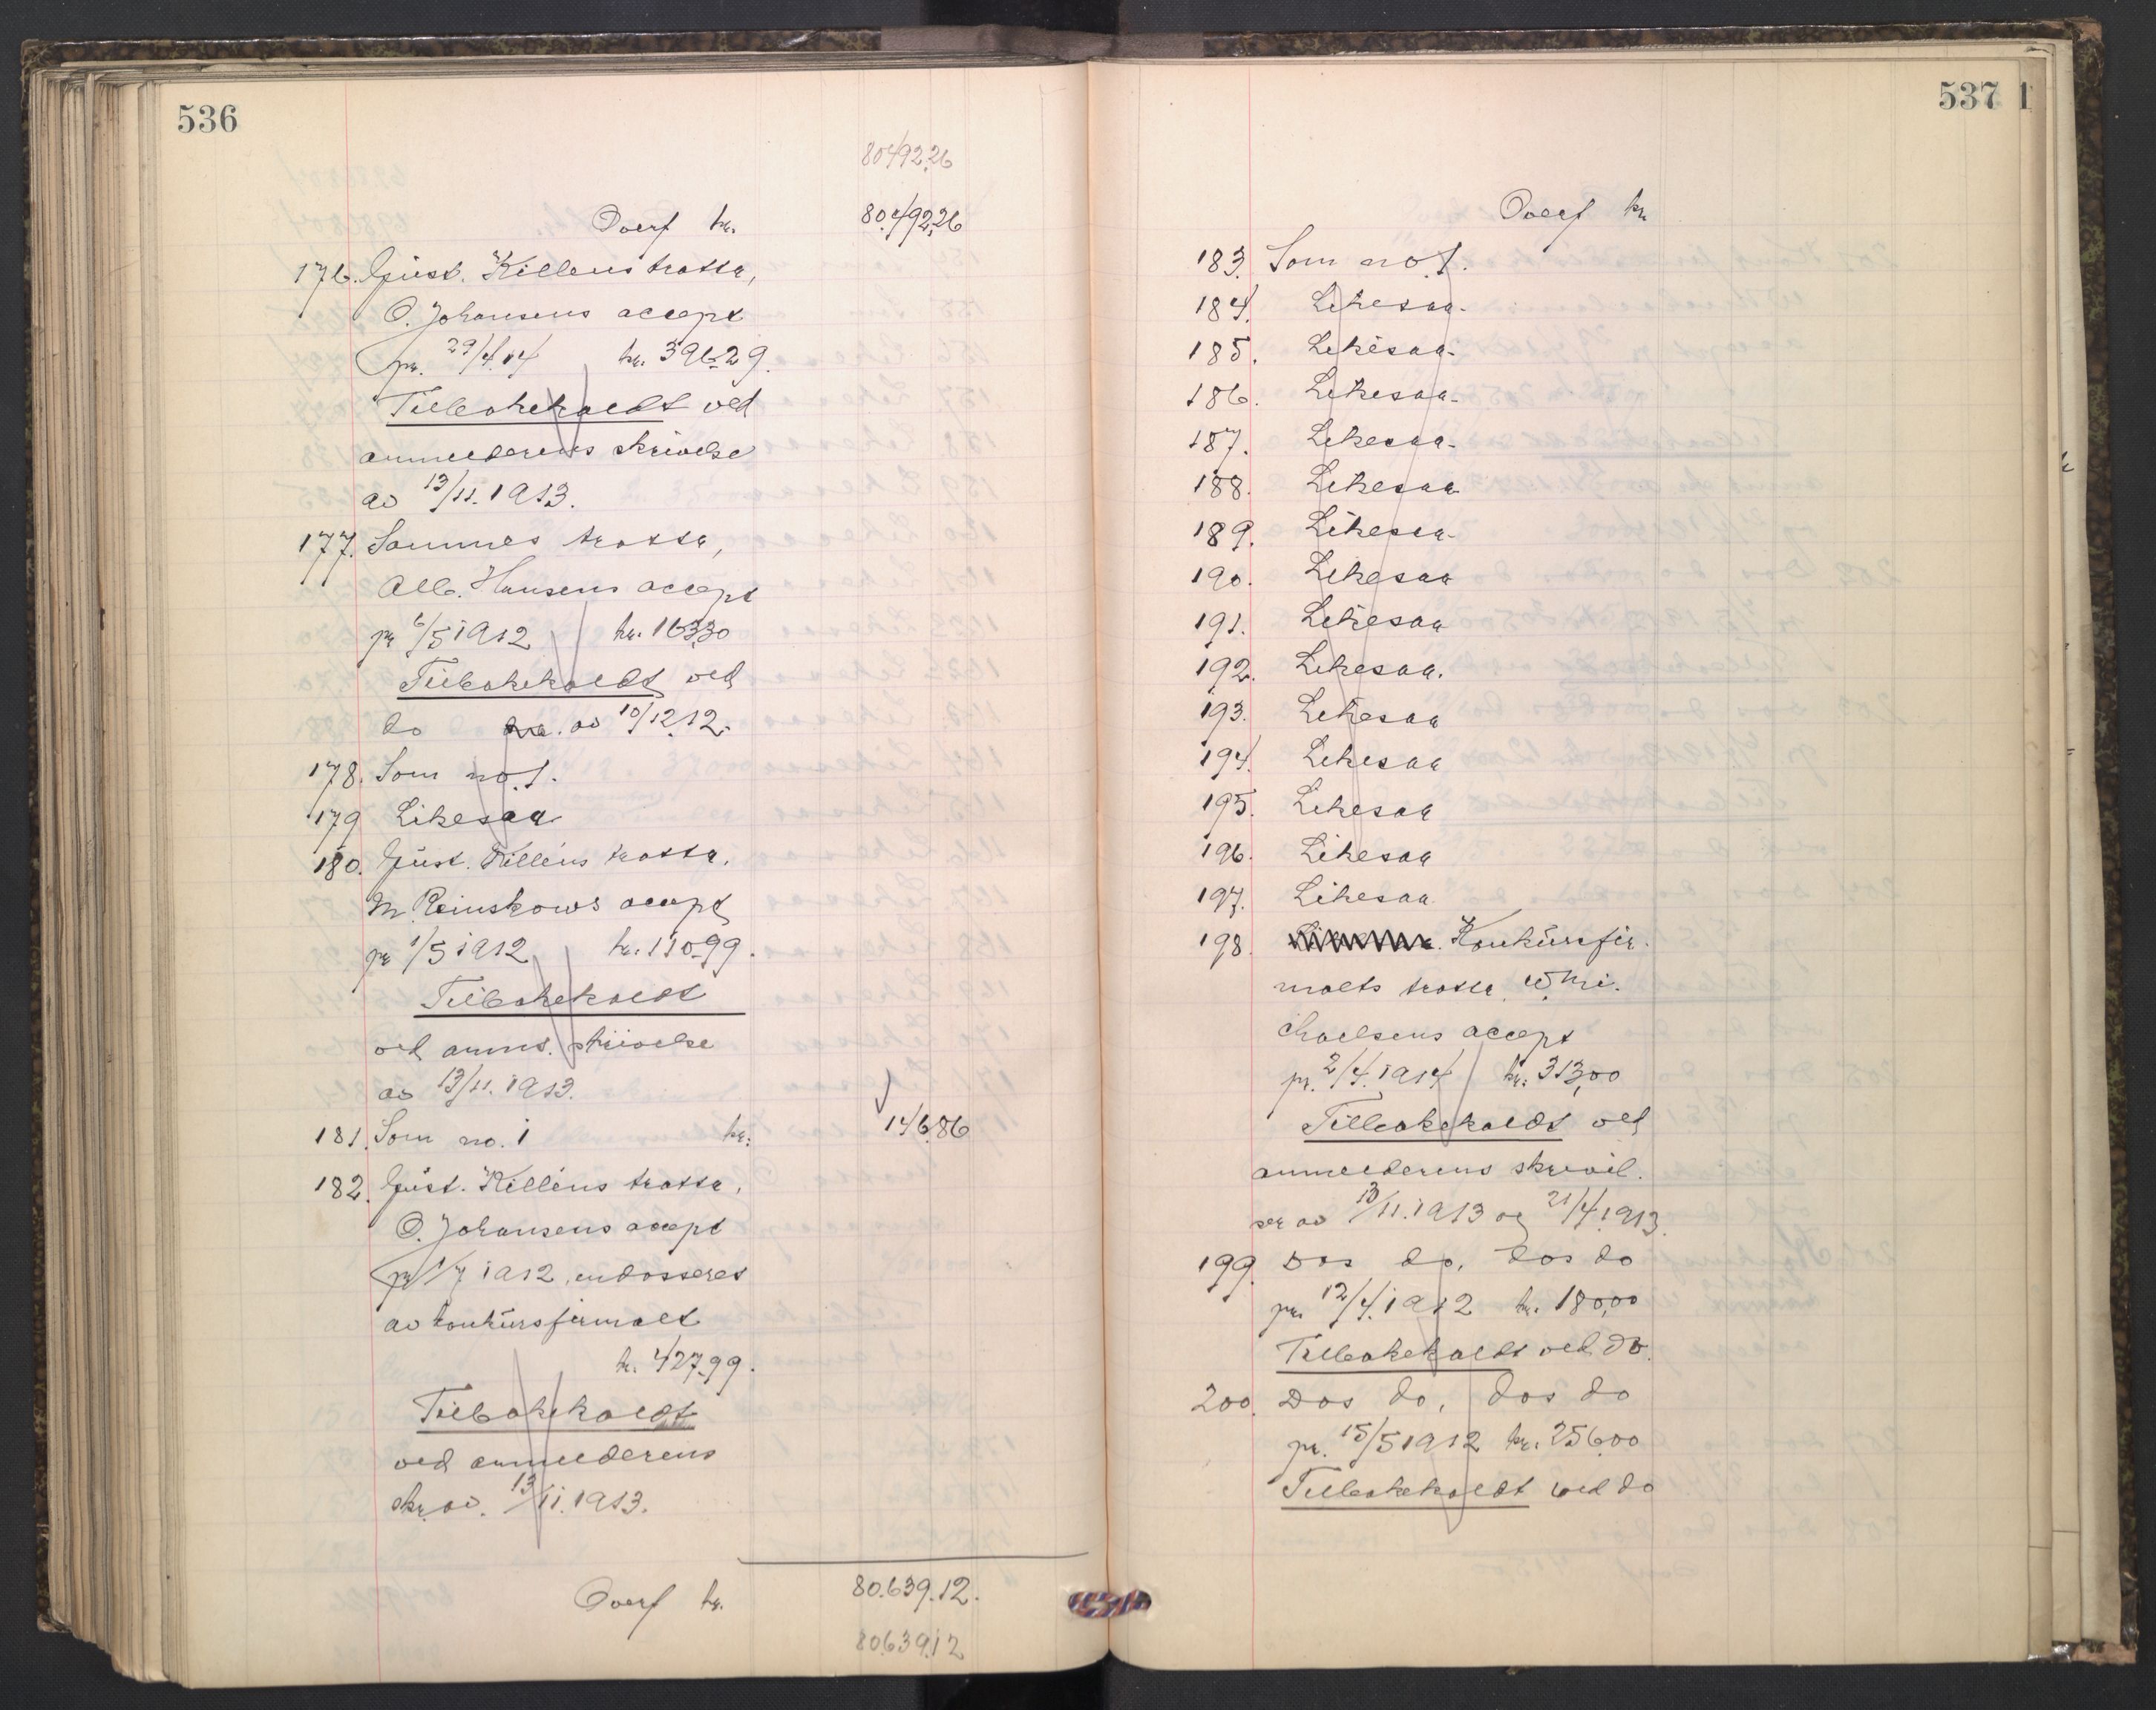 536
80492.26
Overf kr. 80.492,26
176. Gust. Killéns tratta,
O. Johansens accept
pr. 29/4.14 kr. 396.29.
Tilbakekaldt ved
anmelderens skrivelse
av 13/11.1913.
177. Sammes tratta,
Alb. Hansens accept
pr 6/5 1912 kr. 163,30
Tilbakekaldt ved
do av 10/12.12.
178. Som no 1.
179 Likesaa
180. Gust. Killéns tratta,
M. Reinskows accept
pr 1/5 1912 kr. 110.99.
Tilbakekaldt
ved anms. skrivelse
av 13/11.1913.
181. Som no. 1 kr: 146.86
182. Gust. Killéns tratta,
O. Johansens accept
pr 1/7 1912, endosseret
av konkursfirmaet
kr. 427.99.
Tilbakekaldt
ved anmelderens
skr. av. 13/11.1913.
Overf kr. 80.639.12.
80639.12
537 1
Overf kr
183. Som no 1.
184. Likesaa.
185. Likesaa.
186. Likesaa.
187. Likesaa.
188. Likesaa
189. Likesaa.
190. Likesaa
191. Likesaa
192. Likesaa.
193. Likesaa
194. Likesaa
195. Likesaa
196. Likesaa
197. Likesaa
198. Konkursfir-
maets tratta, W. Mi-
chaelsens accept
pr. 2/4.1914 kr: 313,00
Tilbakekaldt ved
anmelderens skrivel-
ser av 13/11.1913 og 21/4.1913
199. Dos do, dos do
pr. 12/4.1912 kr. 180,00
Tilbakekaldt ved do.
200. Dos do, dos do
pr. 15/5 1912 kr. 256.00
Tilbakekaldt ved do